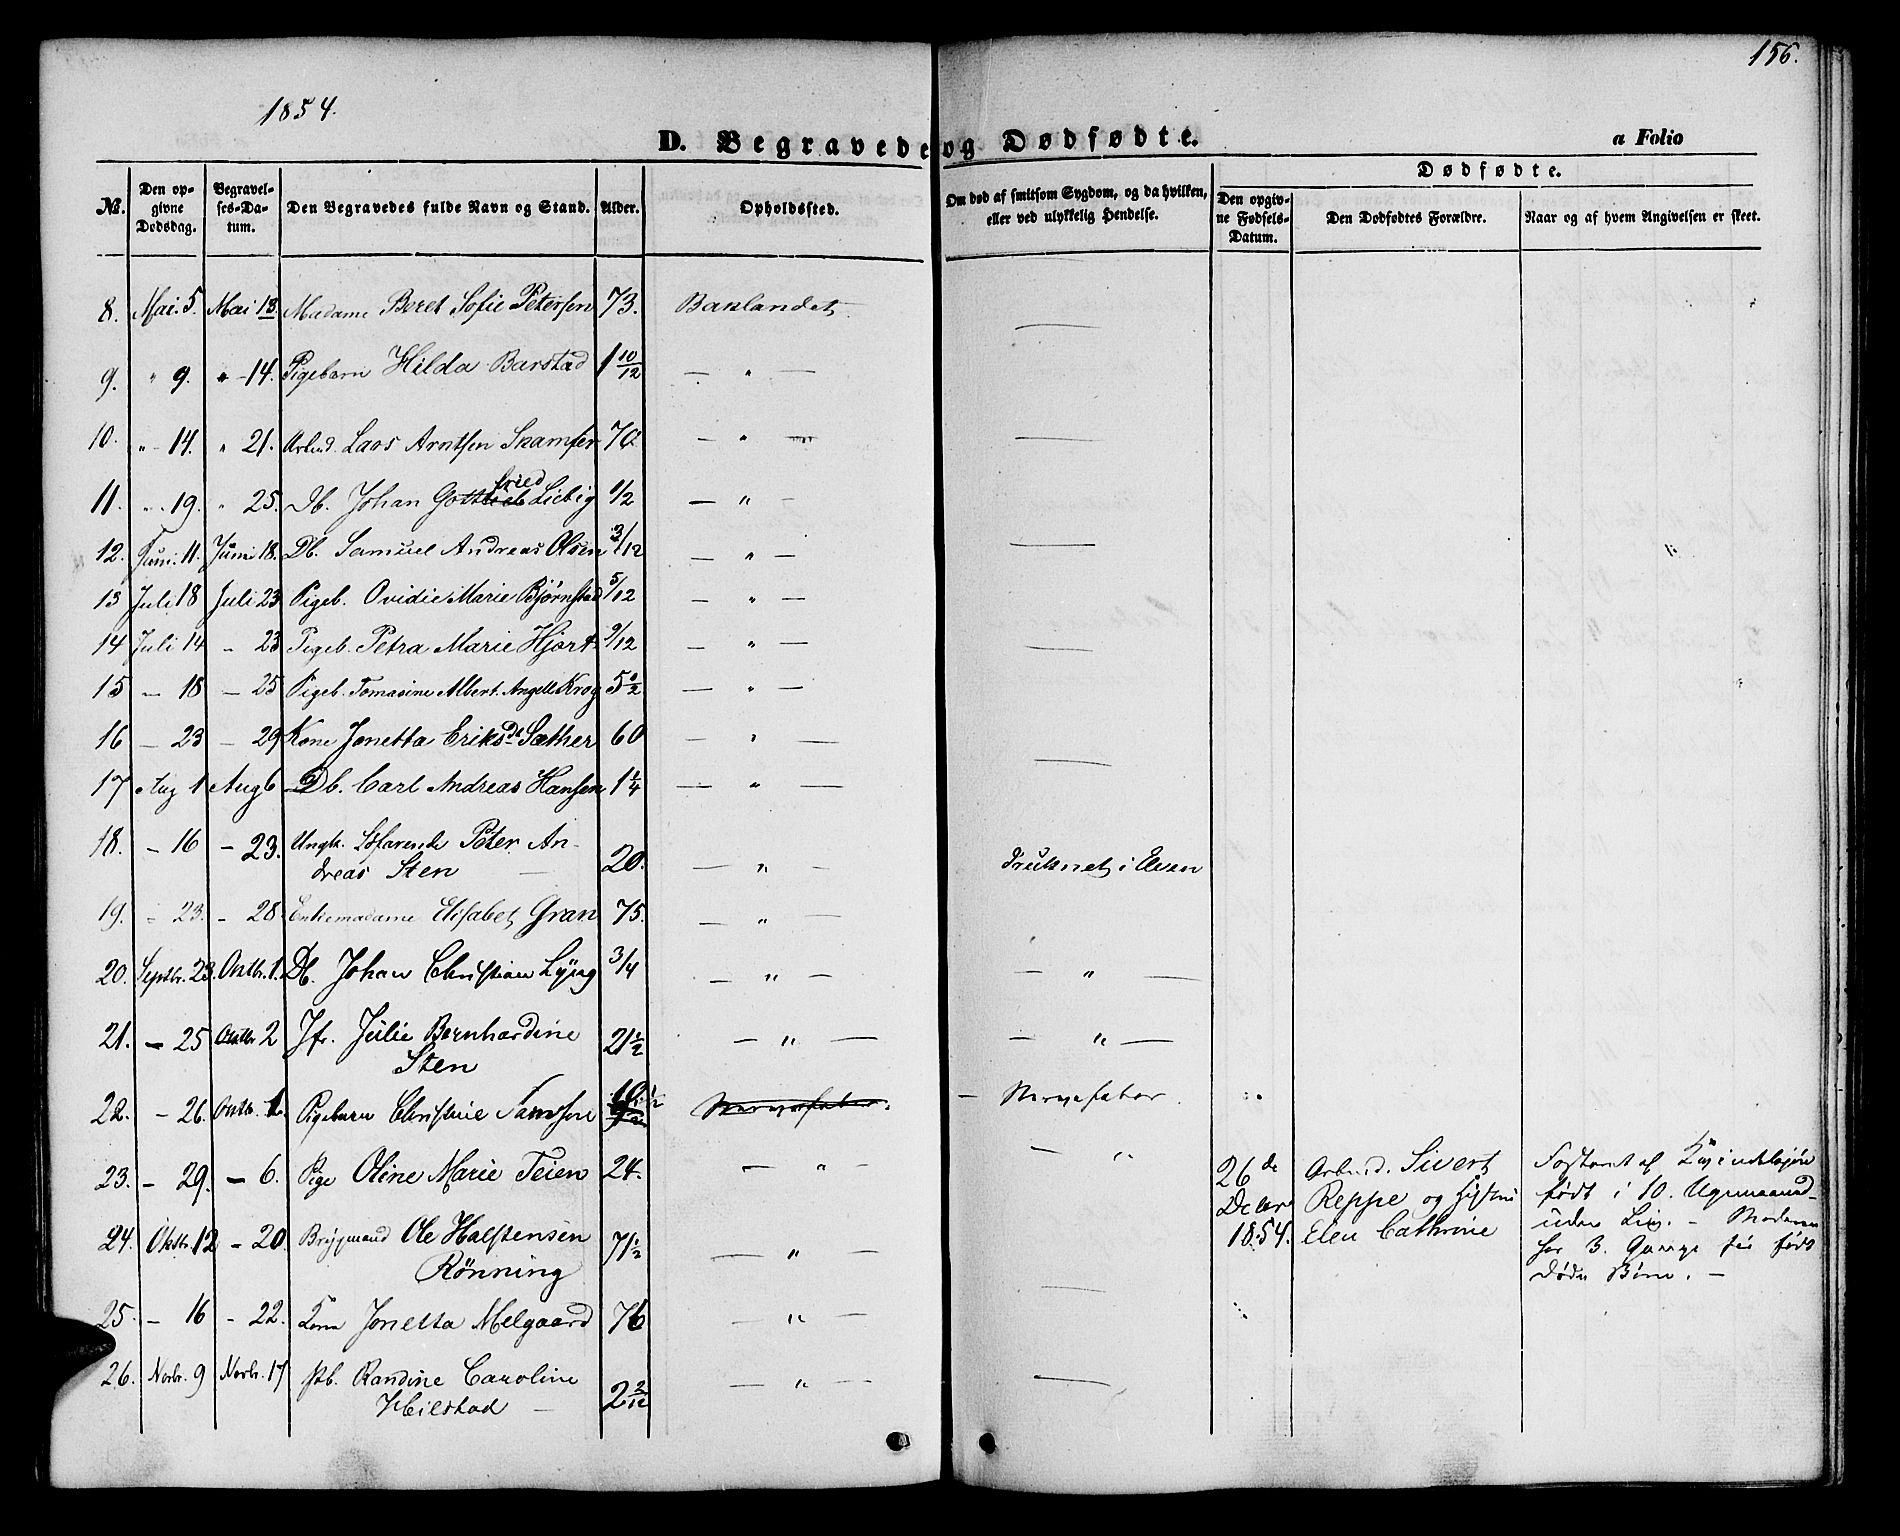 156.
1854.
D. Begravede og Dødfødte.
a Folio
Dødfødte.
No. | Den opgivne Dødsdag. | Begravelses-Datum. | Den Begravedes fulde Navn og Stand. | Alder. | Opholdssted. | Om død af smitsom Sygdom, og da hvilken, eller ved ulykkelig Hendelse. | Den opgivne Fødsels-Datum. | Den Dødfødtes Forældre. | Naar og af hvem Angivelsen er skeet.
8. Mai. 5. Mai 13. Madame Beret Sofie Petersen 73. Baklandet. —
9. " 9. " – 14. Pigebarn Hilda Barstad 1 10/12 — " —
10. " 14. " 21. Arbmd. Laos Arntsen 70. — " — —
fried
11. " 19. " 25. Db. Johan Gottlieb Liebig 1/2 — " —
12. Juni. 11. Juni 18. Db. Samuel Andreas Olsen 3/12 — " — —
13 Juli 18 Juli 23 Pigeb. Ovidie Marie Bjørnstad 5/12 — " —
14 Juli 14 – 23 Pigeb. Petra Marie Hjort 9/12 — " — —
15 — 18 — 25 Pigeb. Tomasine Albert. Angell Krog 5 1/2 — " —
16 — 23 — 29 Kone Jonetta Eriksdt. Sæther 60 — " —
17 Aug 1 Aug 6 Db. Carl Andreas Hansen 1 1/4 — " — —
18. — 16 — 23. Ungk. Søfarende Peter An-
dreas Sten — 20. — " — Druknet i Elven
19. – 23. – 28. Enkemadame Elisabet Gran 75. — " —
20. Septbr. 23. Oktbr. 1. Db. Johan Christian Lyng 3/4 — " — — " —
21. — 25 Oktbr 2 Jfr. Julie Bernhardine 21 1/2 — " — — " —
Sten
22. – 26. Oktb. 1. Pigebarn Christine Samsen Nervefeber. — Nervefeber.
23. – 29. – 6. Pige Oline Marie Teien 24. — " — — "
26de Arbmd. Sivert
Decbr Reppe og Hustru født i 10. Ugemaaned
1854. Elen Cathrine uden Liv. – Moderen
har 3. Gange før født
døde Børn. –
24. Oktbr. 12 – 20. Brygmand Ole Halstensen 71 1/2 — " —
Rönning
25. – 16 – 22. Kone Jonetta Melgaard 76 — " — —
26. Novbr. 9 Novbr. 17 Pb. Randine Caroline 2 2/12 — " — —
Heilstad —